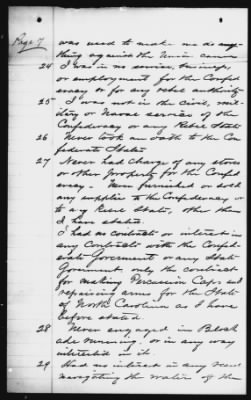 Page 7
was used to make me do any
thing against the Union cause
24 I was in no service, business,
or employment for the Confed
eracy or for any rebel authority
25 I was not in the Civil, mil
itary or Naval service of the
Confederacy or any Rebel State
26 Never took an oath to the Con
federate States
27 Never had charge of any stores
or other property for the Confed
eracy - Never furnished or sold
any supplies to the Confederacy or
to any Rebel State, other than
I have stated.
I had no contracts or interest in
any Contracts with the Confed-
erate Government or any State
Government only the contract
for making Percussion Caps and
repairing arms for the State
of North Carolina as I have
before stated.
28 Never engaged in Block
ade running, or in any way
interested in it.
29 Had no interest in any vessel
navigating the waters of the